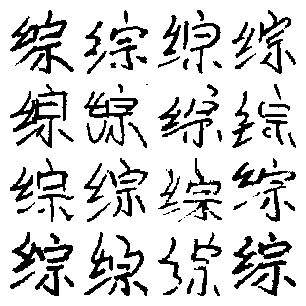 综综综综
综综综综
综综综综
综综综综